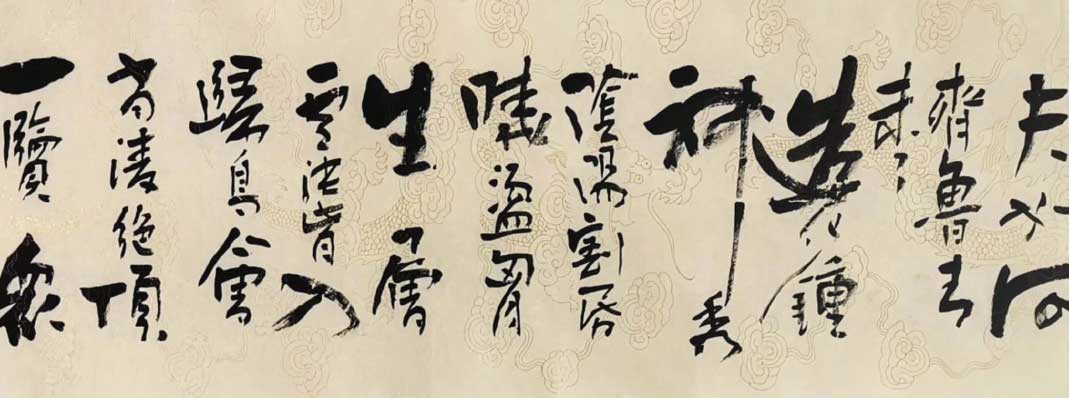 夫如何
齊魯青
未了
造化鐘
神秀
陰陽割昏
曉盪胸
生層
雲決眥入
歸鳥會
當淩絕頂
一覽眾